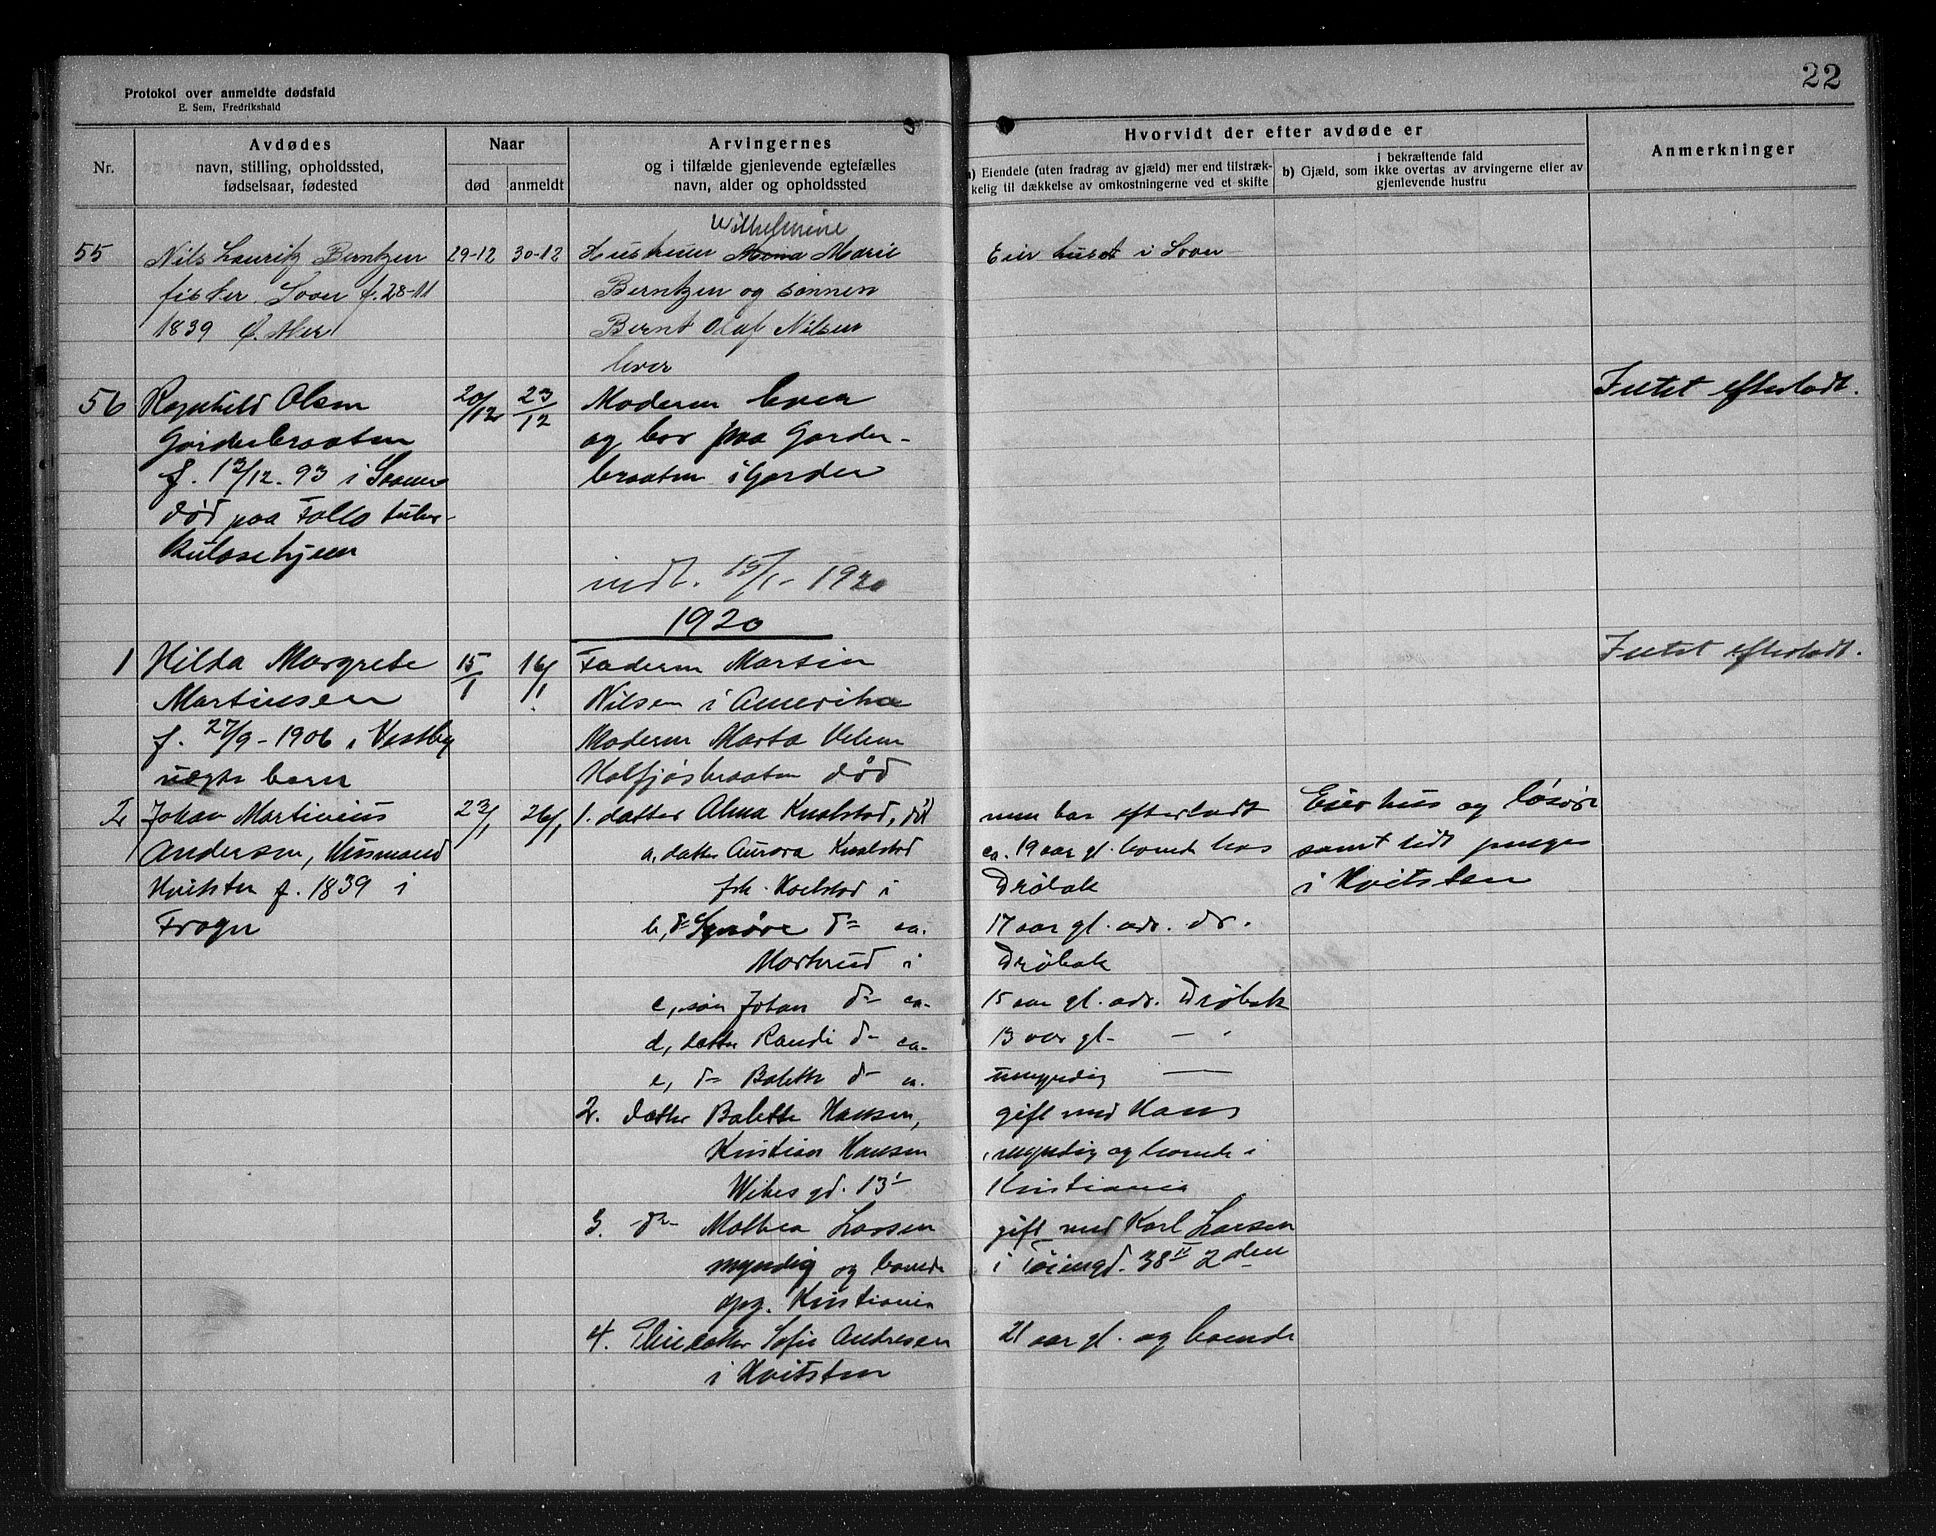 22
Protokol over anmeldte dødsfald
E. Sem, Fredrikshald
Nr.
Avdødes
navn, stilling, opholdssted,
fødselsaar, fødested
Naar
død
anmeldt
Arvingernes
og i tilfælde gjenlevende egtefælles
navn, alder og opholdssted
Hvorvidt der efter avdøde er
a) Eiendele (uten fradrag av gjæld) mer end tilstræk-
kelig til dækkelse av omkostningerne ved et skifte
i bekræftende fald
b) Gjæld, som ikke overtas av arvingerne eller av
gjenlevende hustru
Anmerkninger
55
Nils Lauritz Berntzen
fisker Soon f. 28-11
1839 Ø. Aker
29-12
30-12
Wilhelmine
Hustruen Anna Marie
Berntzen og sønnen
Bernt Olaf Nilsen
lever
Eier huset i Soon
56
Ragnhild Olsen
Garderbraaten
f. 13/12. 93 i Sooner
død paa Follo tuber-
kulosehjem
20/12
23/12
Moderen lever
og bor paa Garder-
braaten i Garder
Intet efterladt.
indt. 15/1- 1920
1920
1
Hilda Margrete
Martinsen
f. 27/9 - 1906 i Vestby
uegte barn
15/1
16/1
Faderen Martin
Nilsen i Amerika
Moderen Marta
Kalfjøsbraaten død
Intet efterladt.
2
Johan Martinius
Andersen, Husmand
Hvitsten f. 1839 i
Frogn
23/1
26/1
1. datter Alma Knalstad, død
a, datter Aurora Knalstad
b, d= Synøve d= ca.
i
c, søn Johan d= ca.
d, datter Randi d= ca.
e, d= Bolette d= ca.
2. datter Bolette Hansen,
Kristian Hansen
Wibes gd. 13
3. d= Mathea Larsen
myndig og boende
opg. Kristiania
4. Pleiedatter Sofie Andresen
i Hvitsten
men har efterladt
ca. 19 aar gl. boende hos
Drøbak
17 aar gl. adr. dr.
Drøbak
15 aar gl. adr. Drøbak
13 aar gl. —
umyndig —
gift med Hans
myndig og boende i
Kristiania
gift med Karl Larsen
i Tøiengd. 38 II 2den
21 aar gl. og boende
Eier hus og løsøre
samt lidt penger
i Hvitsten